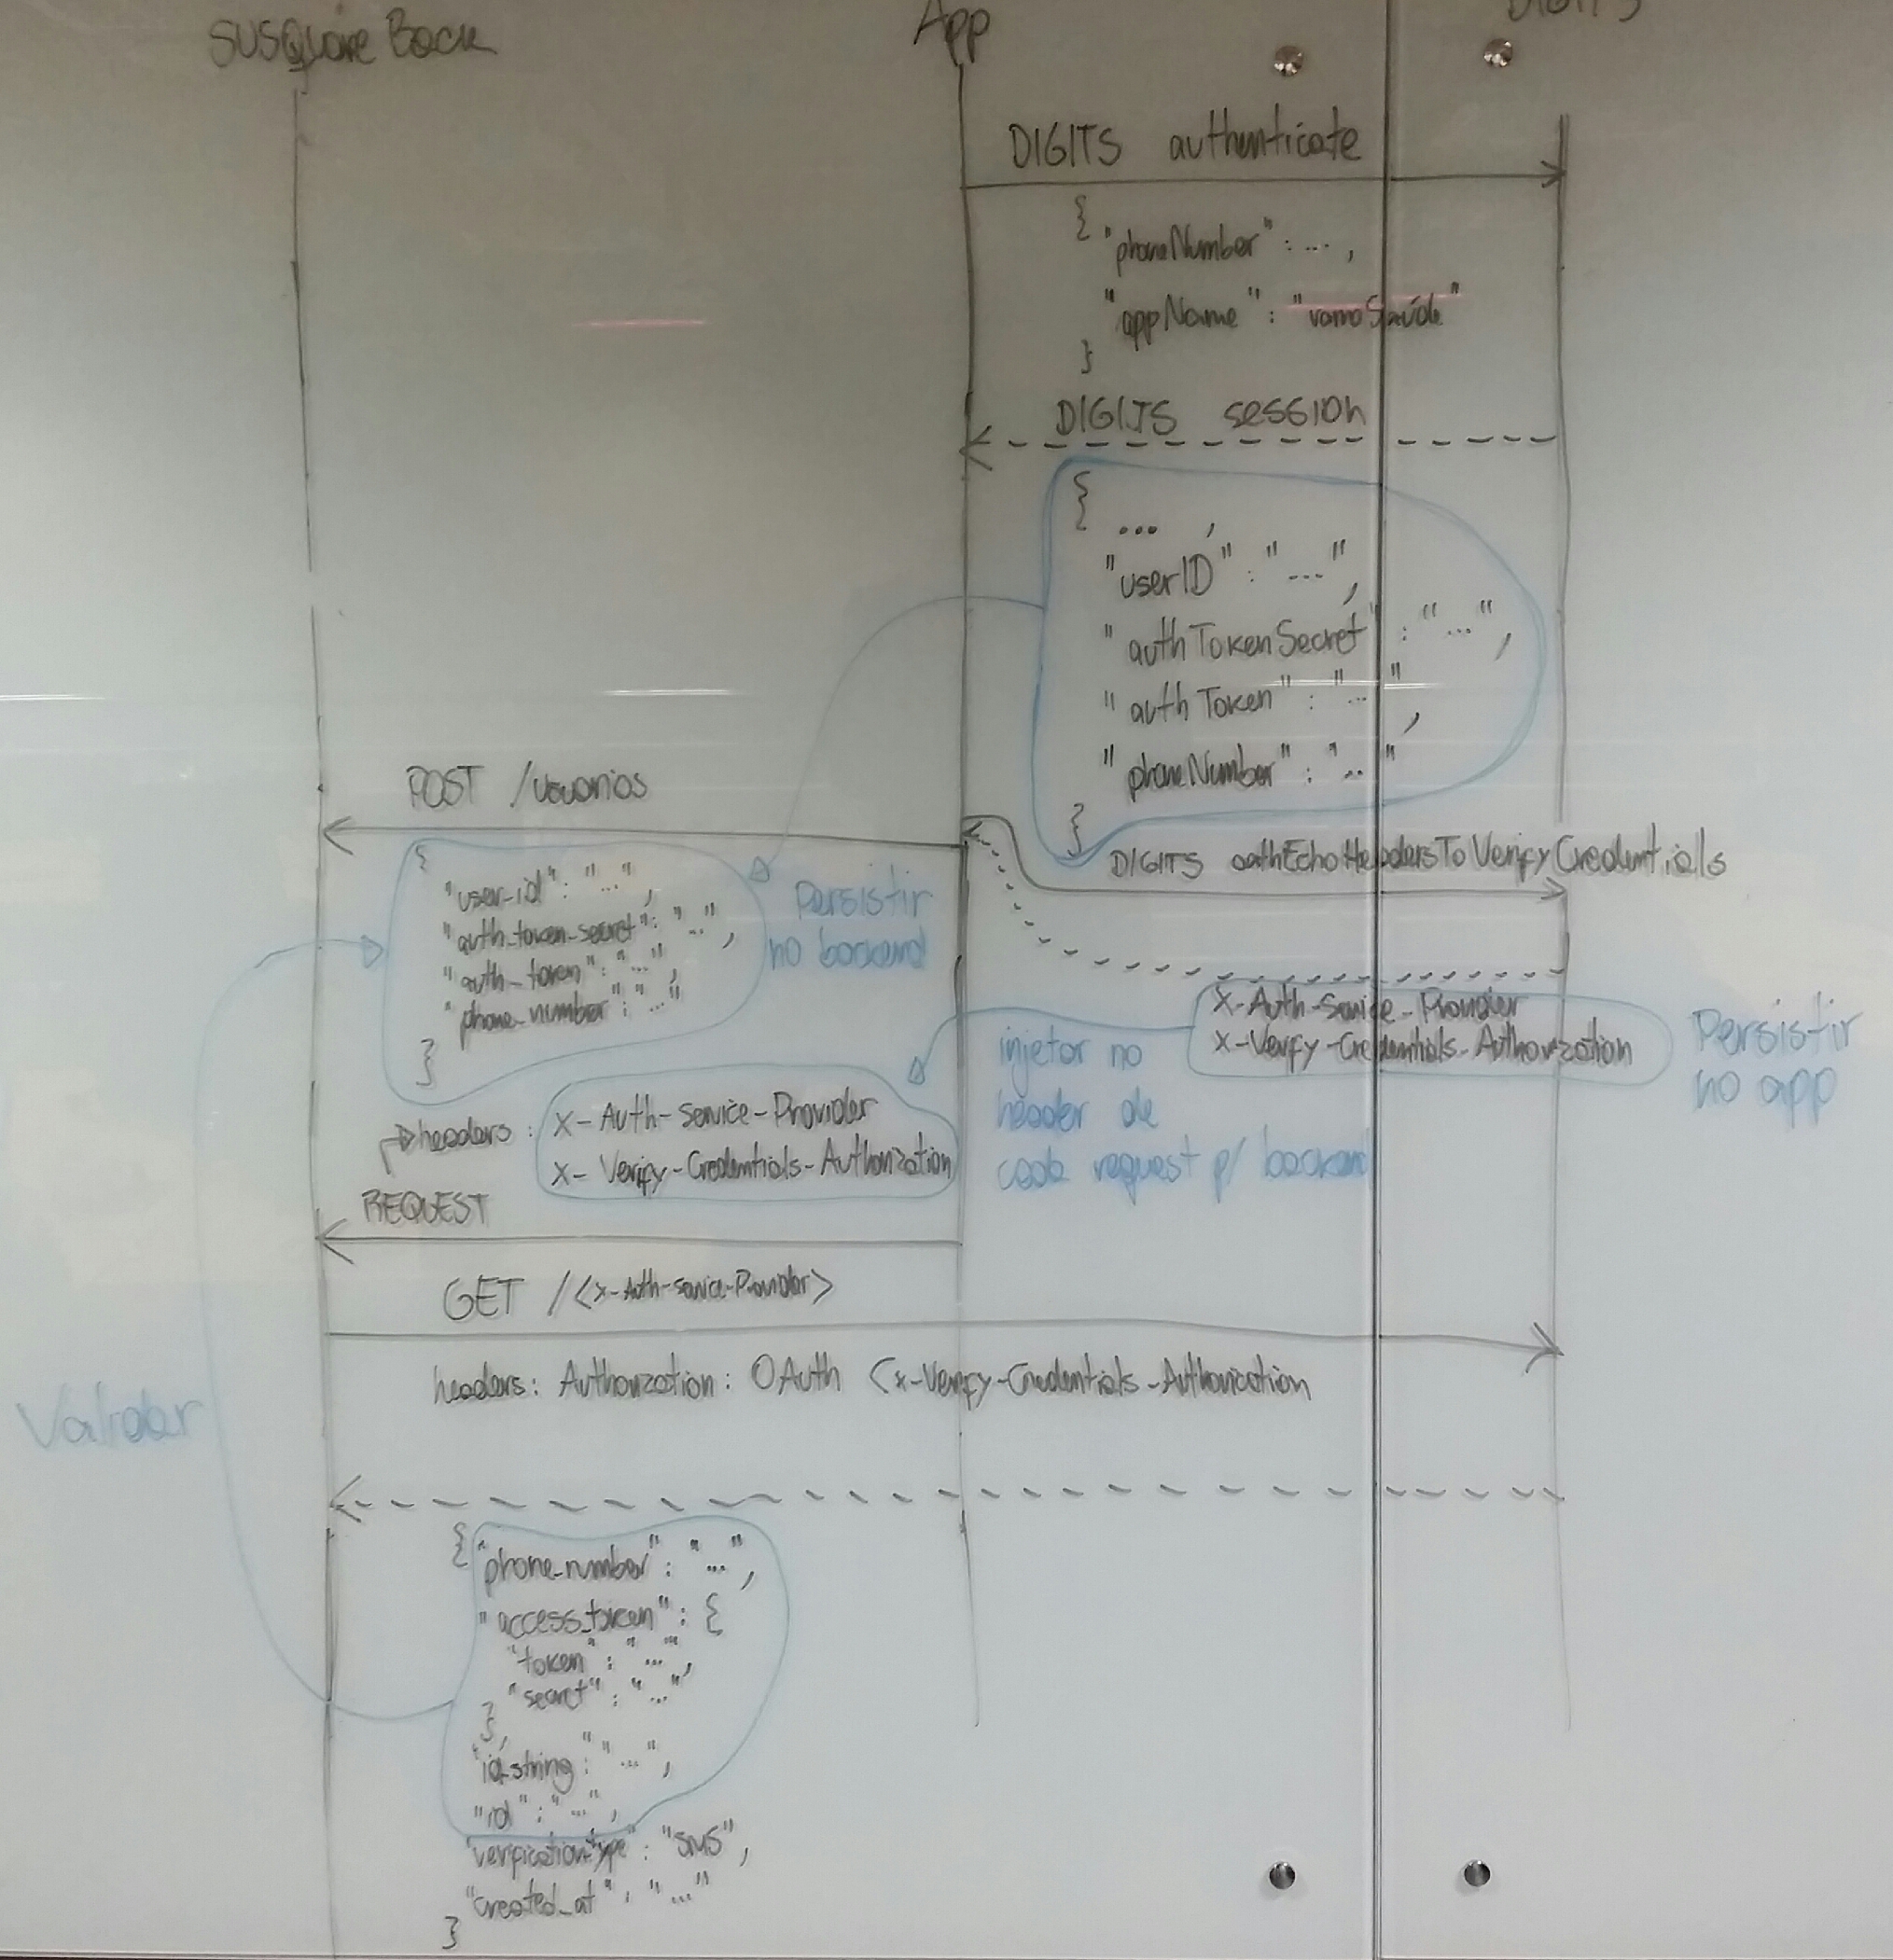 SUSQuare Back
App
DIGITS
DIGITS authenticate
{
"phoneNumber": ...,
"appName": "vamoSaúde"
}
DIGITS session
{
...,
"userID": "...",
"authTokenSecret": "...",
"authToken": "...",
"phoneNumber": "..."
}
POST /usuarios
DIGITS oathEchoHeadersToVerifyCredentials
{
"user_id": "...",
"auth_token_secret": "...",
"auth_token": "...",
"phone_number": "..."
}
Persistir
no backend
X-Auth-Service-Provider
X-Verify-Credentials-Authorization
Persistir
no app
injetar no
header de
cada request p/ backend
headers:
X-Auth-Service-Provider
X-Verify-Credentials-Authorization
REQUEST
GET /<x-Auth-Service-Provider>
headers: Authorization: OAuth <x-Verify-Credentials-Authorization
Validar
{"phone_number": "...",
"access_token": {
"token": "...",
"secret": "..."
},
"id_string": "...",
"id": "...",
"verification_type": "SMS",
"created_at": "..."
}